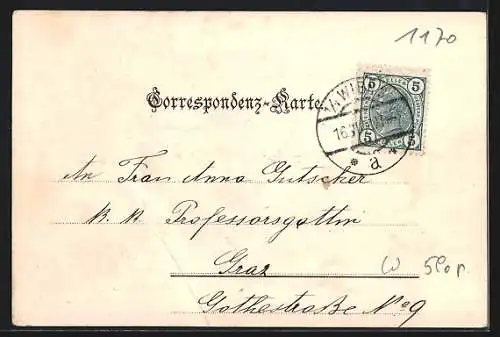 1170
5 5
5 5
WIEN
16
a
Correspondenz-Karte
An Frau Anna Gutscher
K. K. Professorsgattin
Graz
Göthestraße No 9
W